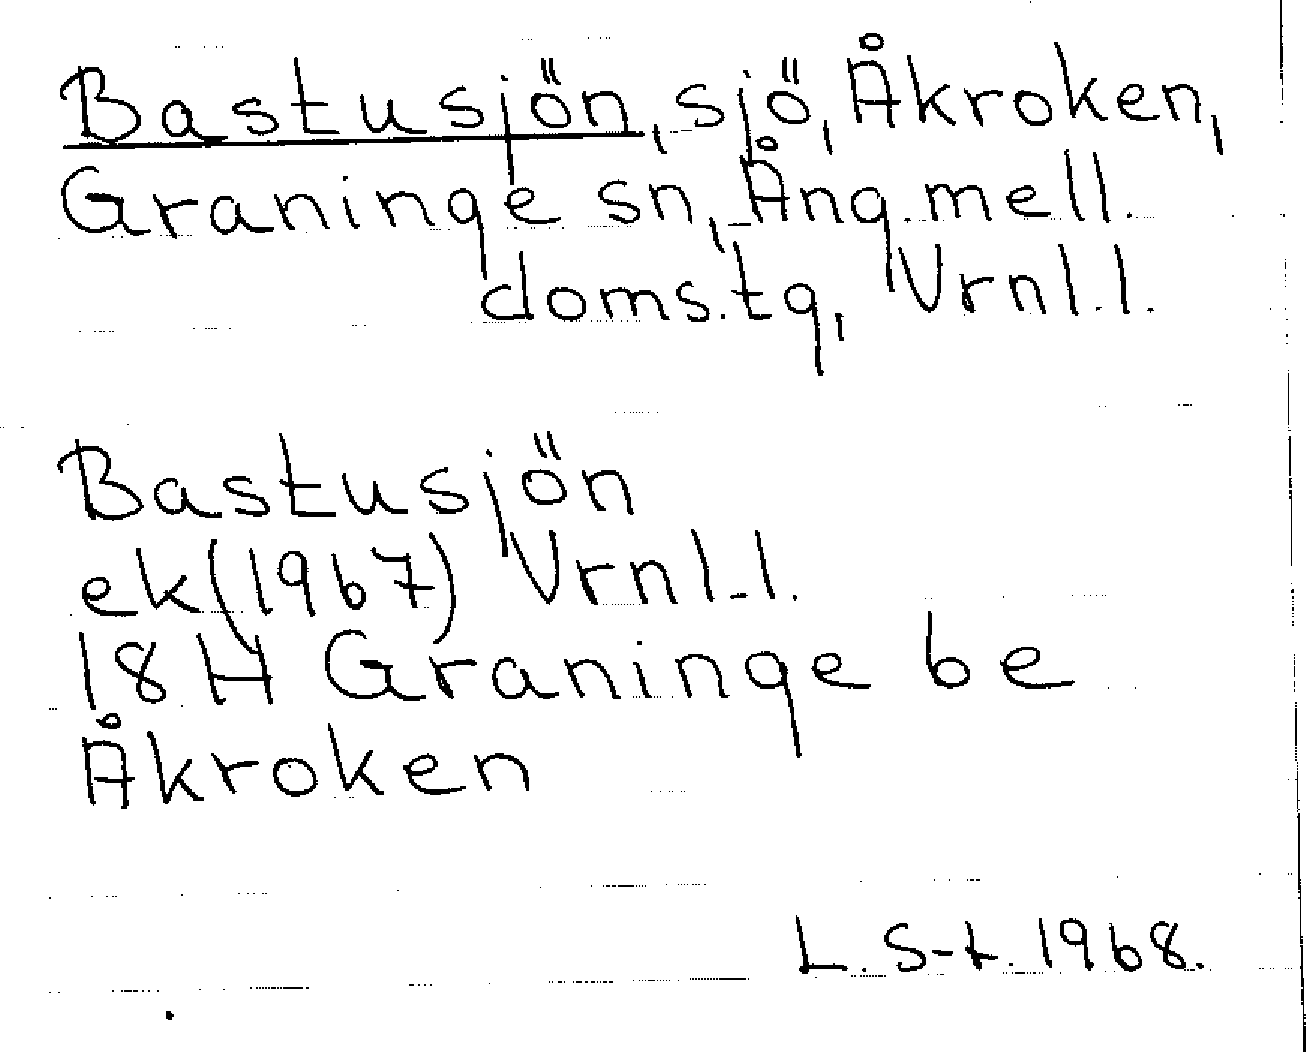 Bastusjön, sjö, Åkroken,
Graninge sn, Ång. mell.
doms.tg, Vrnl.l.
Bastusjön
ek(1967) Vrnl.l.
18 H Graninge be
Åkroken
L. S-t. 1968.